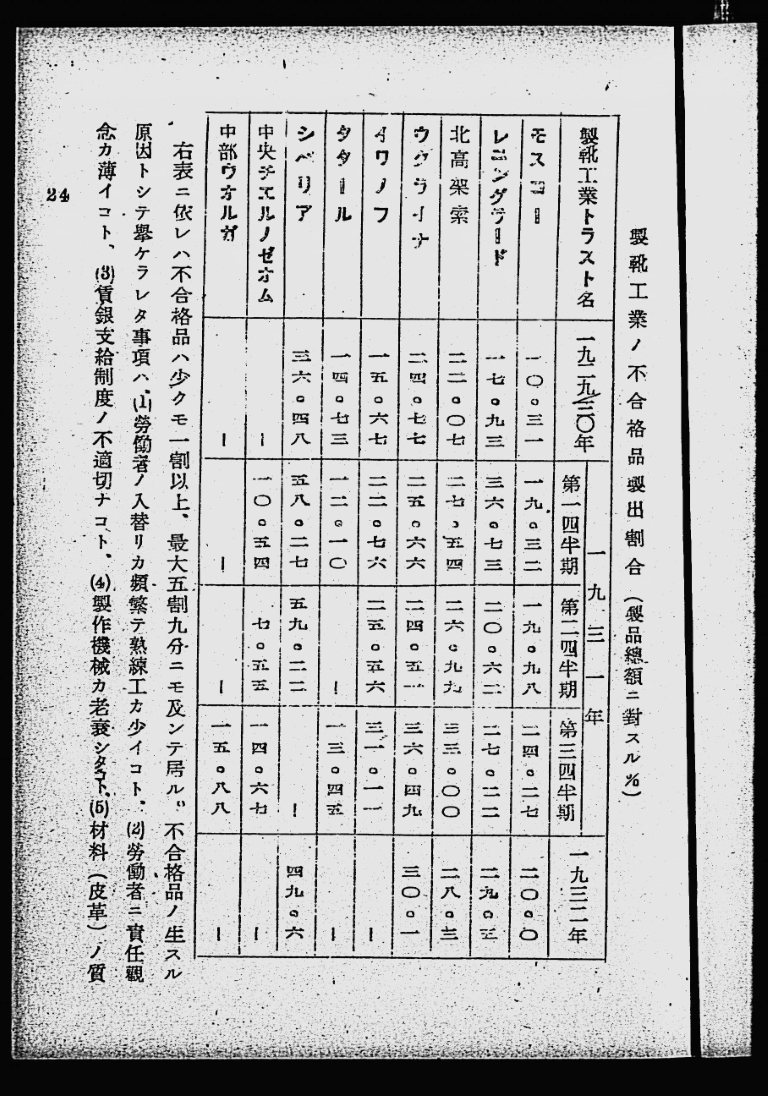 製靴工業ノ不合格品製出割合（製品總額ニ對スル％）
製靴工業トラスト名 一九二九／三〇年 一九三一年 第一四半期 第二四半期 第三四半期 一九三二年
モスコー 一〇。三一 一九。三二 一九。九八 二四。二七 二〇。〇
レニングラード 一七。九三 三六。七三 二〇。六二 二七。二二 二九。三
北高架索 二二。〇七 二七。五四 二六。九九 三三。〇〇 二八。三
ウクライナ 二四。七七 二五。六六 二四。五一 三六。四九 三〇。一
イワノフ 一五。六七 二二。七六 二五。五六 三一。一一 ―
タタール 一四。七三 一二。一〇 ― 一三。四五 ―
シベリア 三六。四八 五八。二七 五九。二二 ― 四九。六
中央チエルノゼオム ― 一〇。五四 七。五五 一四。六七 ―
中部ウオルガ ― ― ― 一五。八八 ―
右表ニ依レハ不合格品ハ少クモ一割以上、最大五割九分ニモ及ンテ居ル。不合格品ノ生スル
原因トシテ擧ケラレタ事項ハ、(1)勞働者ノ入替リカ頻繁テ熟練工カ少イコト、(2)勞働者ニ責任觀
念カ薄イコト、(3)賃銀支給制度ノ不適切ナコト、(4)製作機械カ老衰シタコト、(5)材料（皮革）ノ質
24